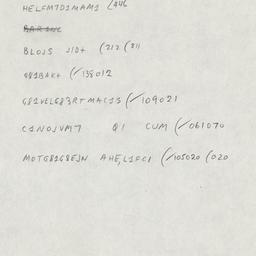 HELFM7D1MAM1 (446
BARINC
BLOJS J1D+ (212 (811
G81BAK+ (/138012
G81VELG83RTMAC15 (/109021
C1NOJVM7 Q1 CUM (/061070
MOTG81G8EJN AHE,L1FC1 (/105020 (020